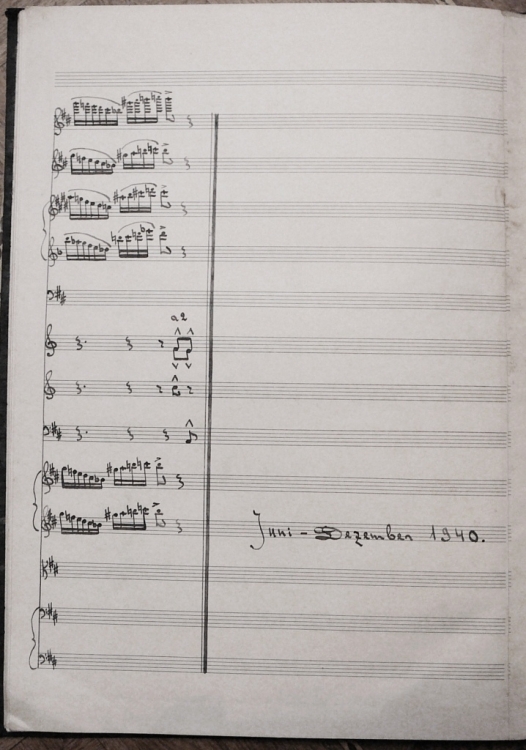 a2
Juni - Dezember 1940.